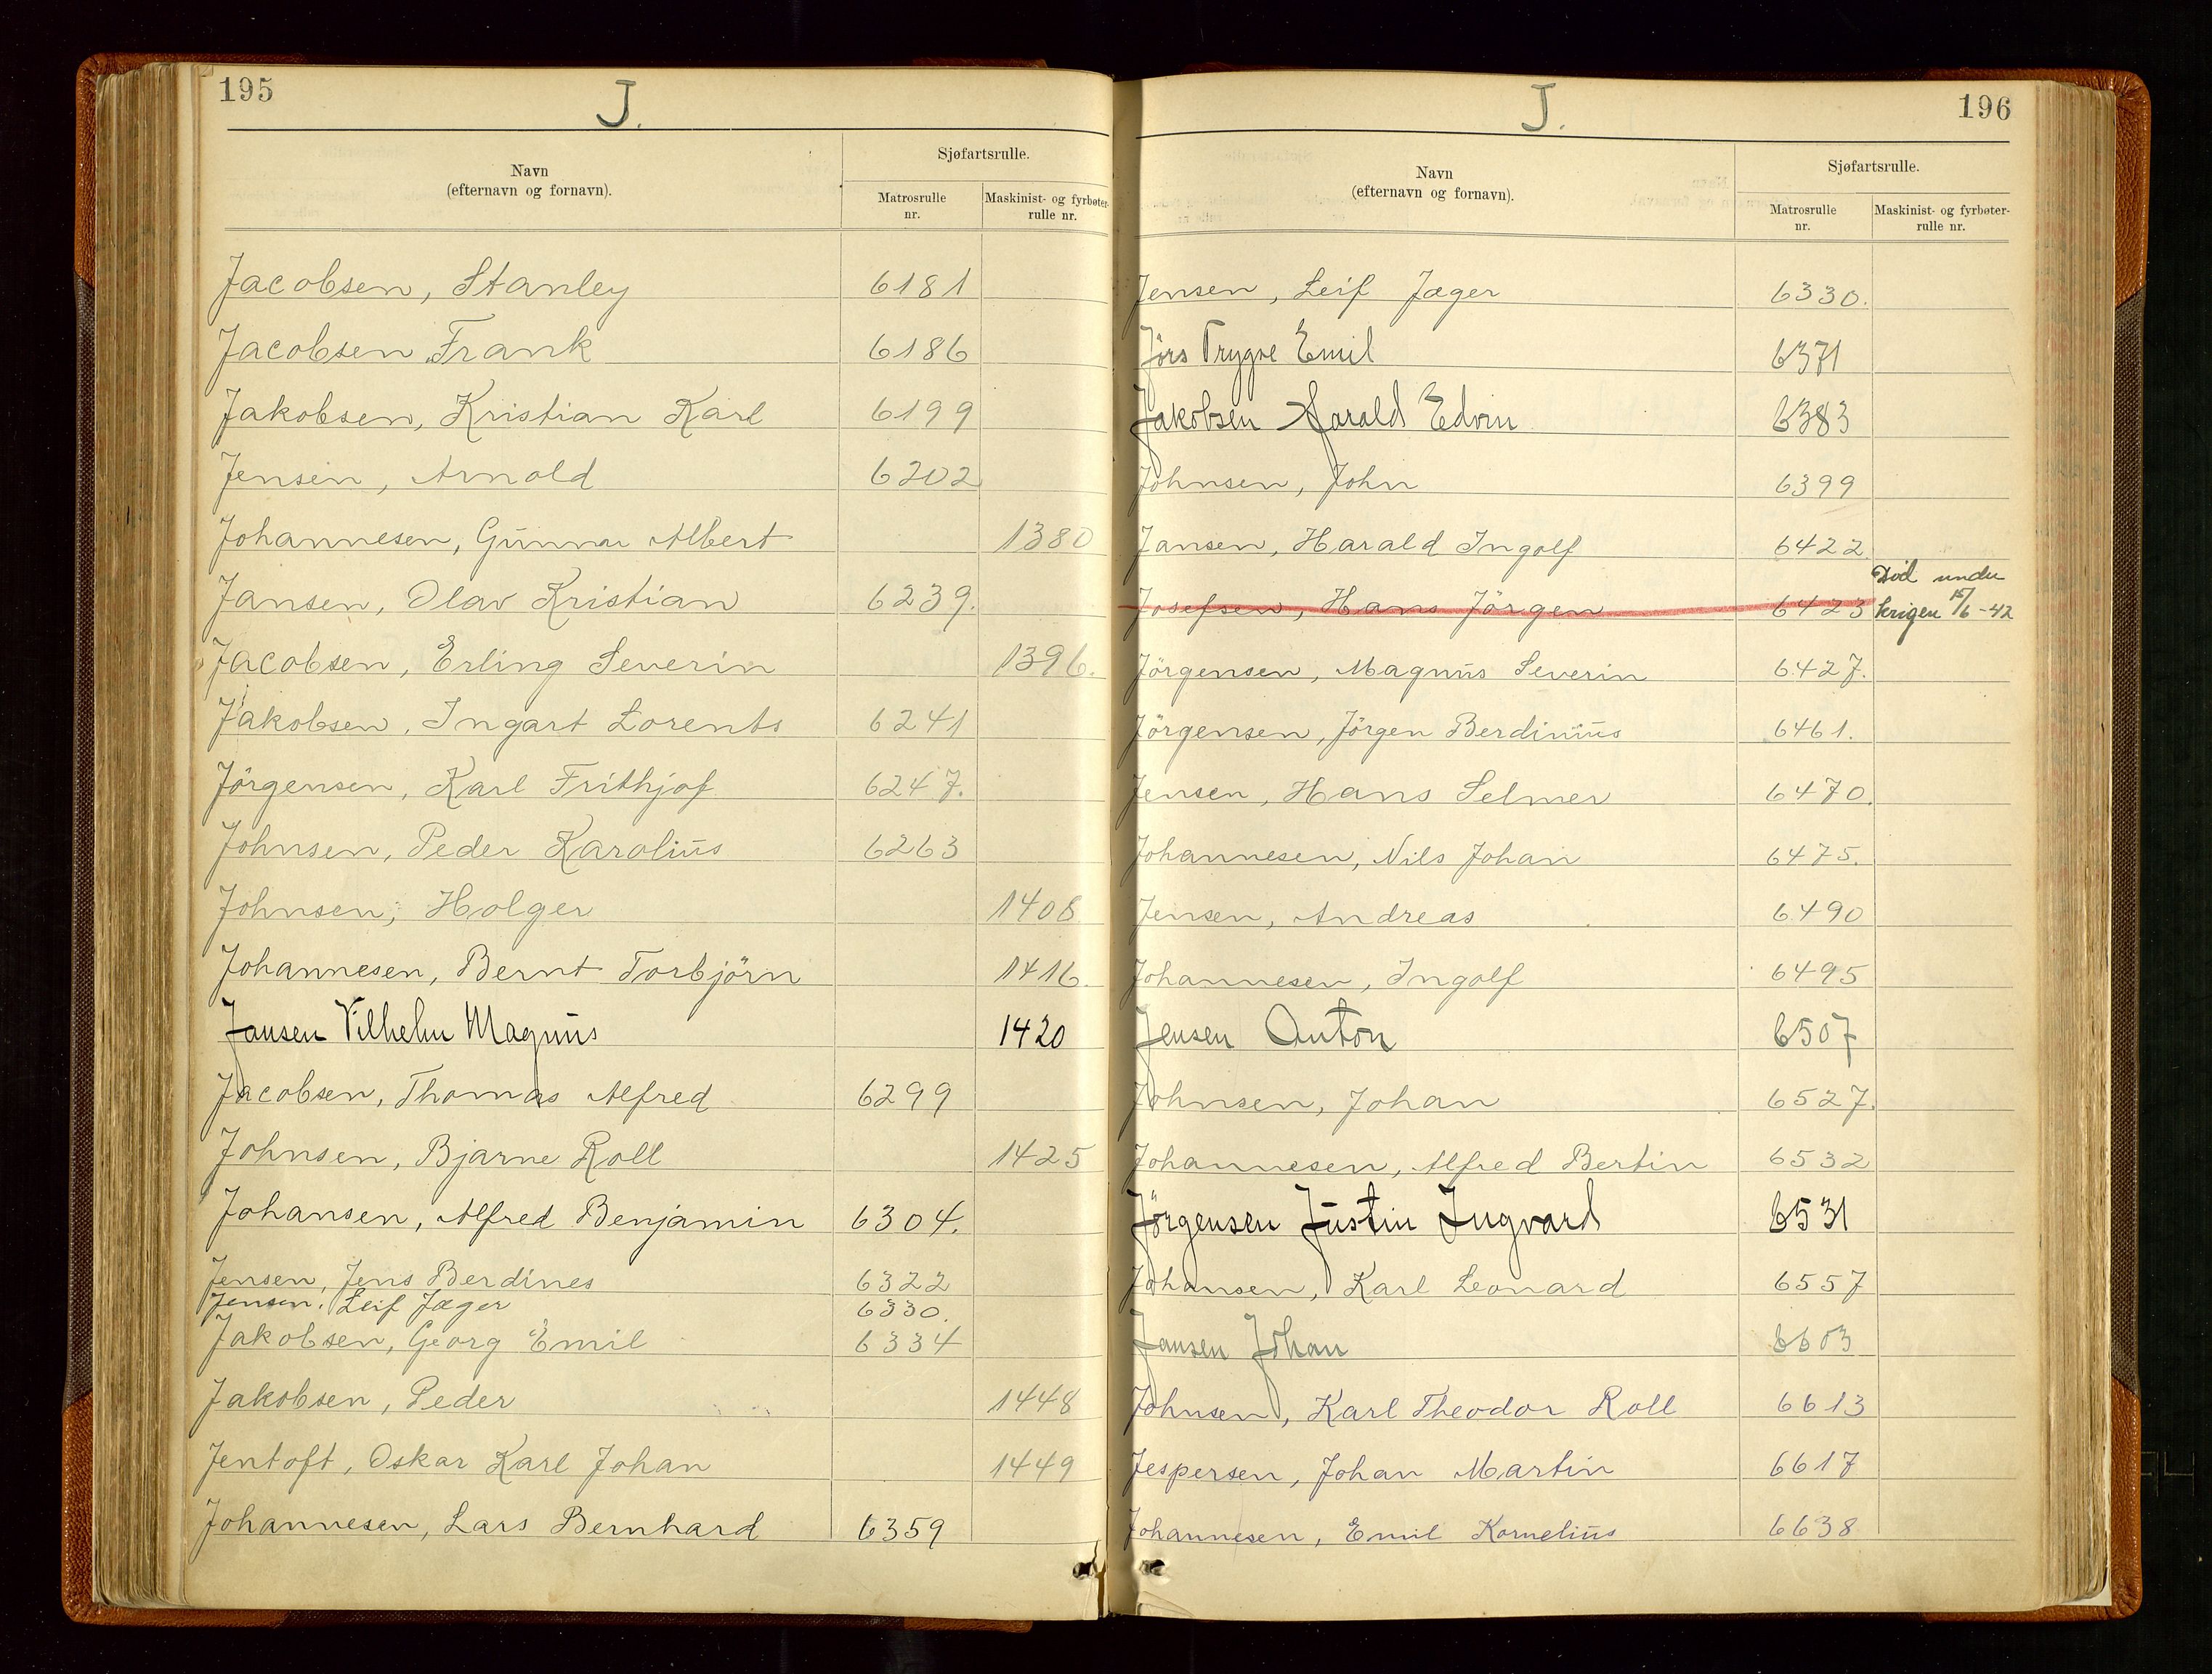 195
J.
Navn
(efternavn og fornavn).
Sjøfartsrulle.
Matrosrulle
nr.
Maskinist- og fyrbøter-
rulle nr.
Jacobsen, Stanley 6181
Jacobsen, Frank 6186
Jakobsen, Kristian Karl 6199
Jensen, Arnold 6202
Johannesen, Gunnar Albert 1380
Jansen, Olav Kristian 6239.
Jacobsen, Erling Severin 1396.
Jakobsen, Ingart Lorents 6241
Jörgensen, Karl Frithjof 6247.
Johnsen, Peder Karolius 6263
Johnsen, Holger 1408
Johannesen, Bernt Torbjörn 1416.
Jansen Vilhelm Magnus 1420
Jacobsen, Thomas Alfred 6299
Johnsen, Bjarne Roll 1425
Johansen, Alfred Benjamin 6304.
Jensen, Jens Berdines 6322
Jensen, Leif Jæger 6330.
Jakobsen, Georg Emil 6334
Jakobsen, Peder 1448
Jentoft, Oskar Karl Johan 1449
Johannesen, Lars Bernhard 6359
196
J.
Navn
(efternavn og fornavn).
Sjøfartsrulle.
Matrosrulle
nr.
Maskinist- og fyrbøter-
rulle nr.
Jensen, Leif Jæger 6330.
Jörs Trygve Emil 6371
Jakobsen Harald Edvin 6383
Johnsen, John 6399
Jansen, Harald Ingolf 6422
Josefsen, Hans Jörgen 6423 Död under
krigen 15/6-42
Jörgensen, Magnus Severin 6427.
Jörgensen, Jörgen Berdinius 6461.
Jensen, Hans Selmer 6470.
Johannesen, Nils Johan 6475.
Jensen, Andreas 6490
Johannesen, Ingolf 6495
Jensen Anton 6507
Johnsen, Johan 6527.
Johannesen, Alfred Bertin 6532
Jörgensen Justin Ingvard 6531
Johansen, Karl Leonard 6557
Jansen Johan 6603
Johnsen, Karl Theodor Roll 6613
Jespersen, Johan Martin 6617
Johannesen, Emil Kornelius 6638